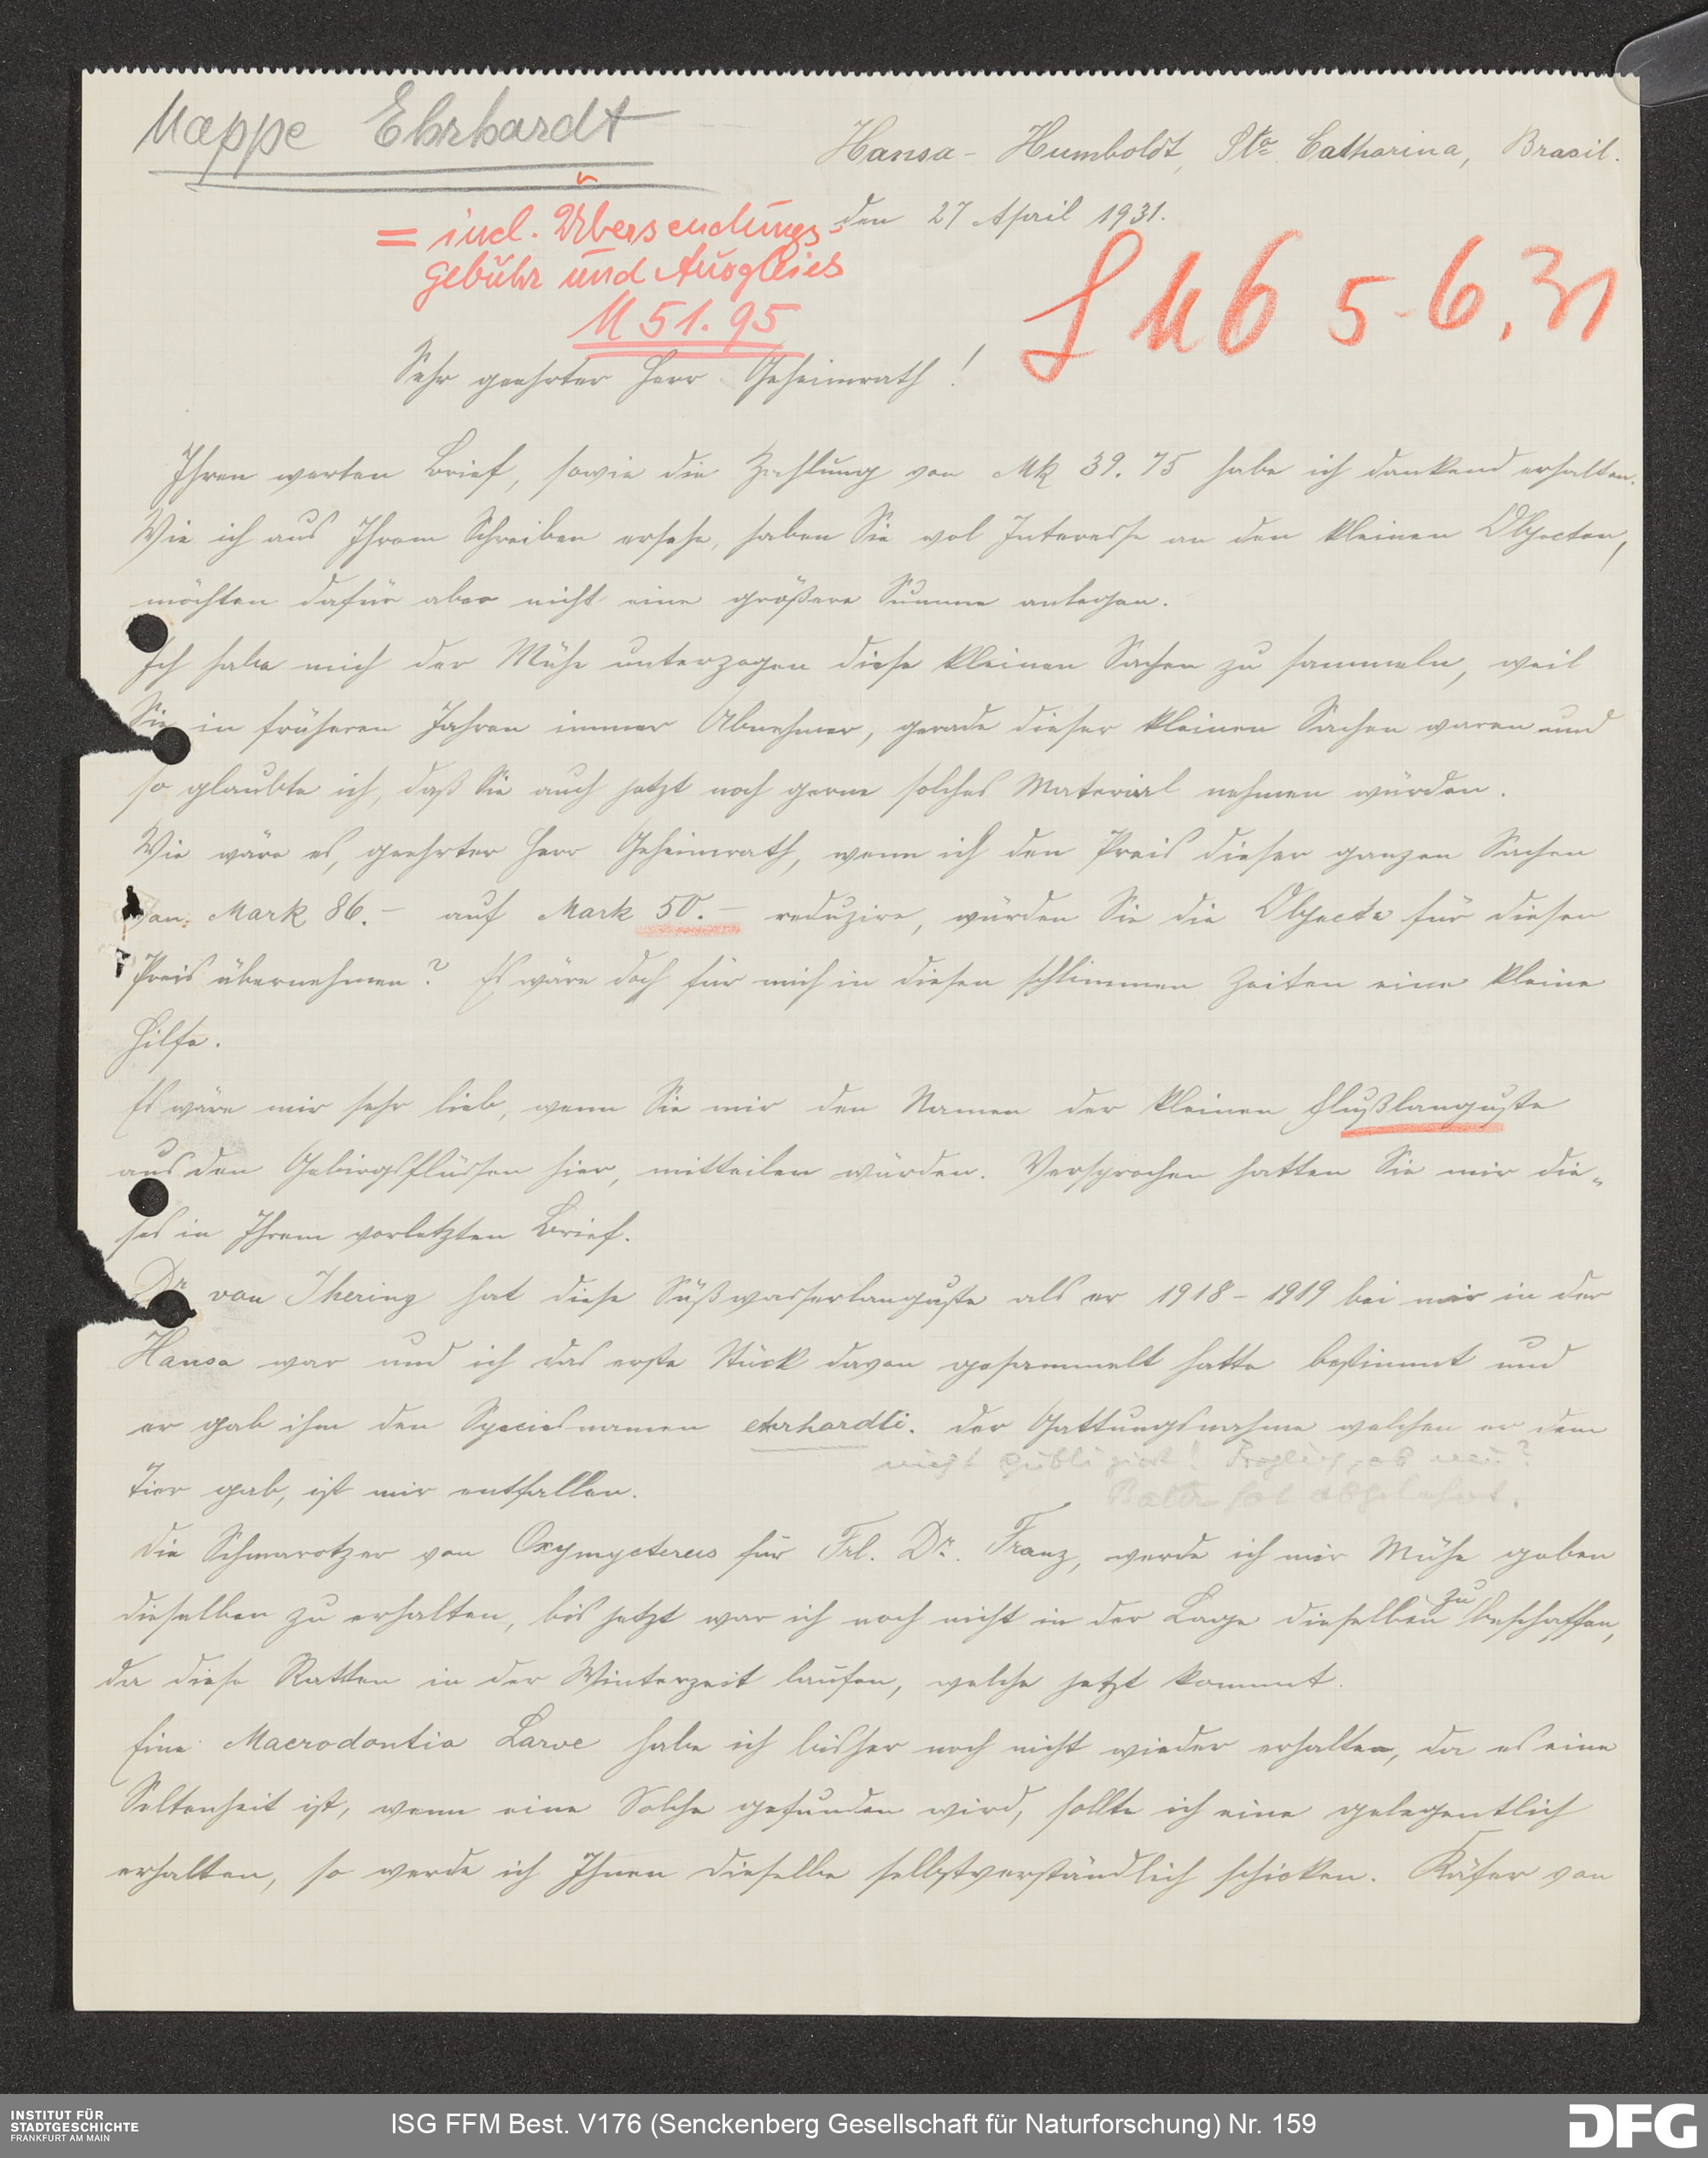 Mappe Ehrhardt
Hansa - Humboldt, Sta Catharina, Brasil.
den 27 April 1931.
= incl. Übersendungs-
gebühr und Ausgleich
M 51.95
5.6.31
Sehr geehrter Herr Geheimrath!
Ihren werten Brief, sowie die Zahlung von Mk 39.75 habe ich dankend erhalten.
Wie ich aus Ihrem Schreiben ersehe, haben Sie wol Interesse an den kleinen Objecten,
möchten dafür aber nicht eine größere Summe anlegen.
Ich habe mich der Mühe unterzogen diese kleinen Sachen zu sammeln, weil
Sie in früheren Jahren immer Abnehmer, gerade dieser kleinen Sachen waren und
so glaubte ich, daß Sie auch jetzt noch gerne solches Material nehmen würden.
Wie wäre es, geehrter Herr Geheimrath, wenn ich den Preis dieser ganzen Sachen
von Mark 86.- auf Mark 50.- reduzire, würden Sie die Objecte für diesen
Preis übernehmen? Es wäre doch für mich in diesen schlimmen Zeiten eine kleine
Hilfe.
Es wäre mir sehr lieb, wenn Sie mir den Namen der kleinen Flußlanguste
aus den Gebirgsflüssen hier, mitteilen würden. Versprochen hatten Sie mir die„
ses in Ihrem vorletzten Brief.
Dr von Ihering hat diese Süßwasserlanguste als er 1918 - 1919 bei mir in der
Hansa war und ich das erste Stück davon gesammelt hatte bestimmt und
er gab ihm den Speciesnamen ehrhardti. der Gattungsnahme welchen er dem
nicht publiziert! Fraglich, ob neu?
hat abgelehnt.
Tier gab, ist mir entfallen.
Die Schmarotzer von Oxymycterus für Frl. Dr. Franz, werde ich mir Mühe geben
dieselben zu erhalten, bis jetzt war ich noch nicht in der Lage dieselben zu beschaffen,
da diese Ratten in der Winterzeit laufen, welche jetzt kommt.
Eine Macrodontia Larve habe ich bisher noch nicht wieder erhalten, da es eine
Seltenheit ist, wenn eine Solche gefunden wird, sollte ich eine gelegentlich
erhalten, so werde ich Ihnen dieselbe selbstverständlich schicken. Käfer von
INSTITUT FÜR
STADTGESCHICHTE
FRANKFURT AM MAIN
ISG FFM Best. V176 (Senckenberg Gesellschaft für Naturforschung) Nr. 159
DFG